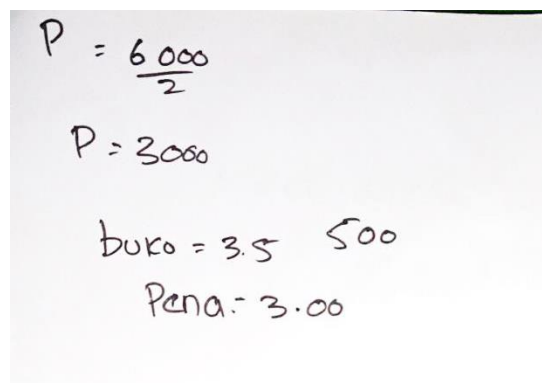 P = 6 000
2
P = 3000
buko = 3.5 500
Pena = 3.00